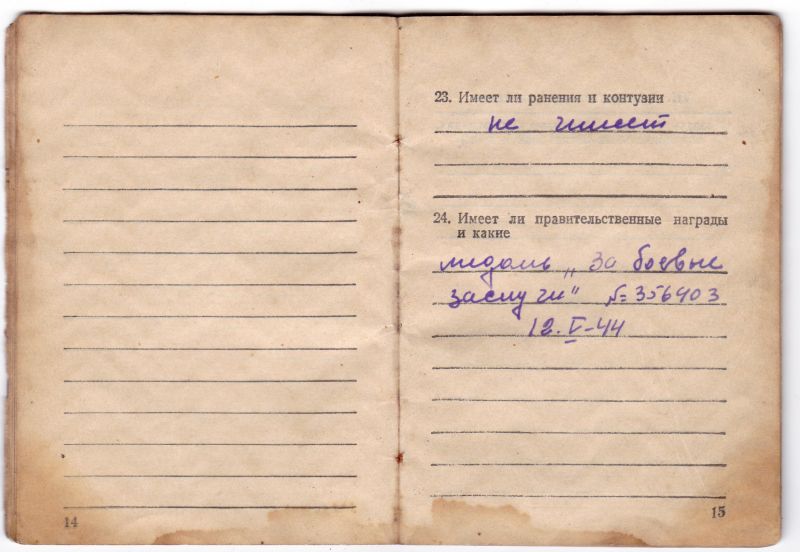 14
23. Имеет ли ранения и контузии
не имеет
24. Имеет ли правительственные награды
и какие
медаль „За боевые
заслуги" №356403
12.V-44
15